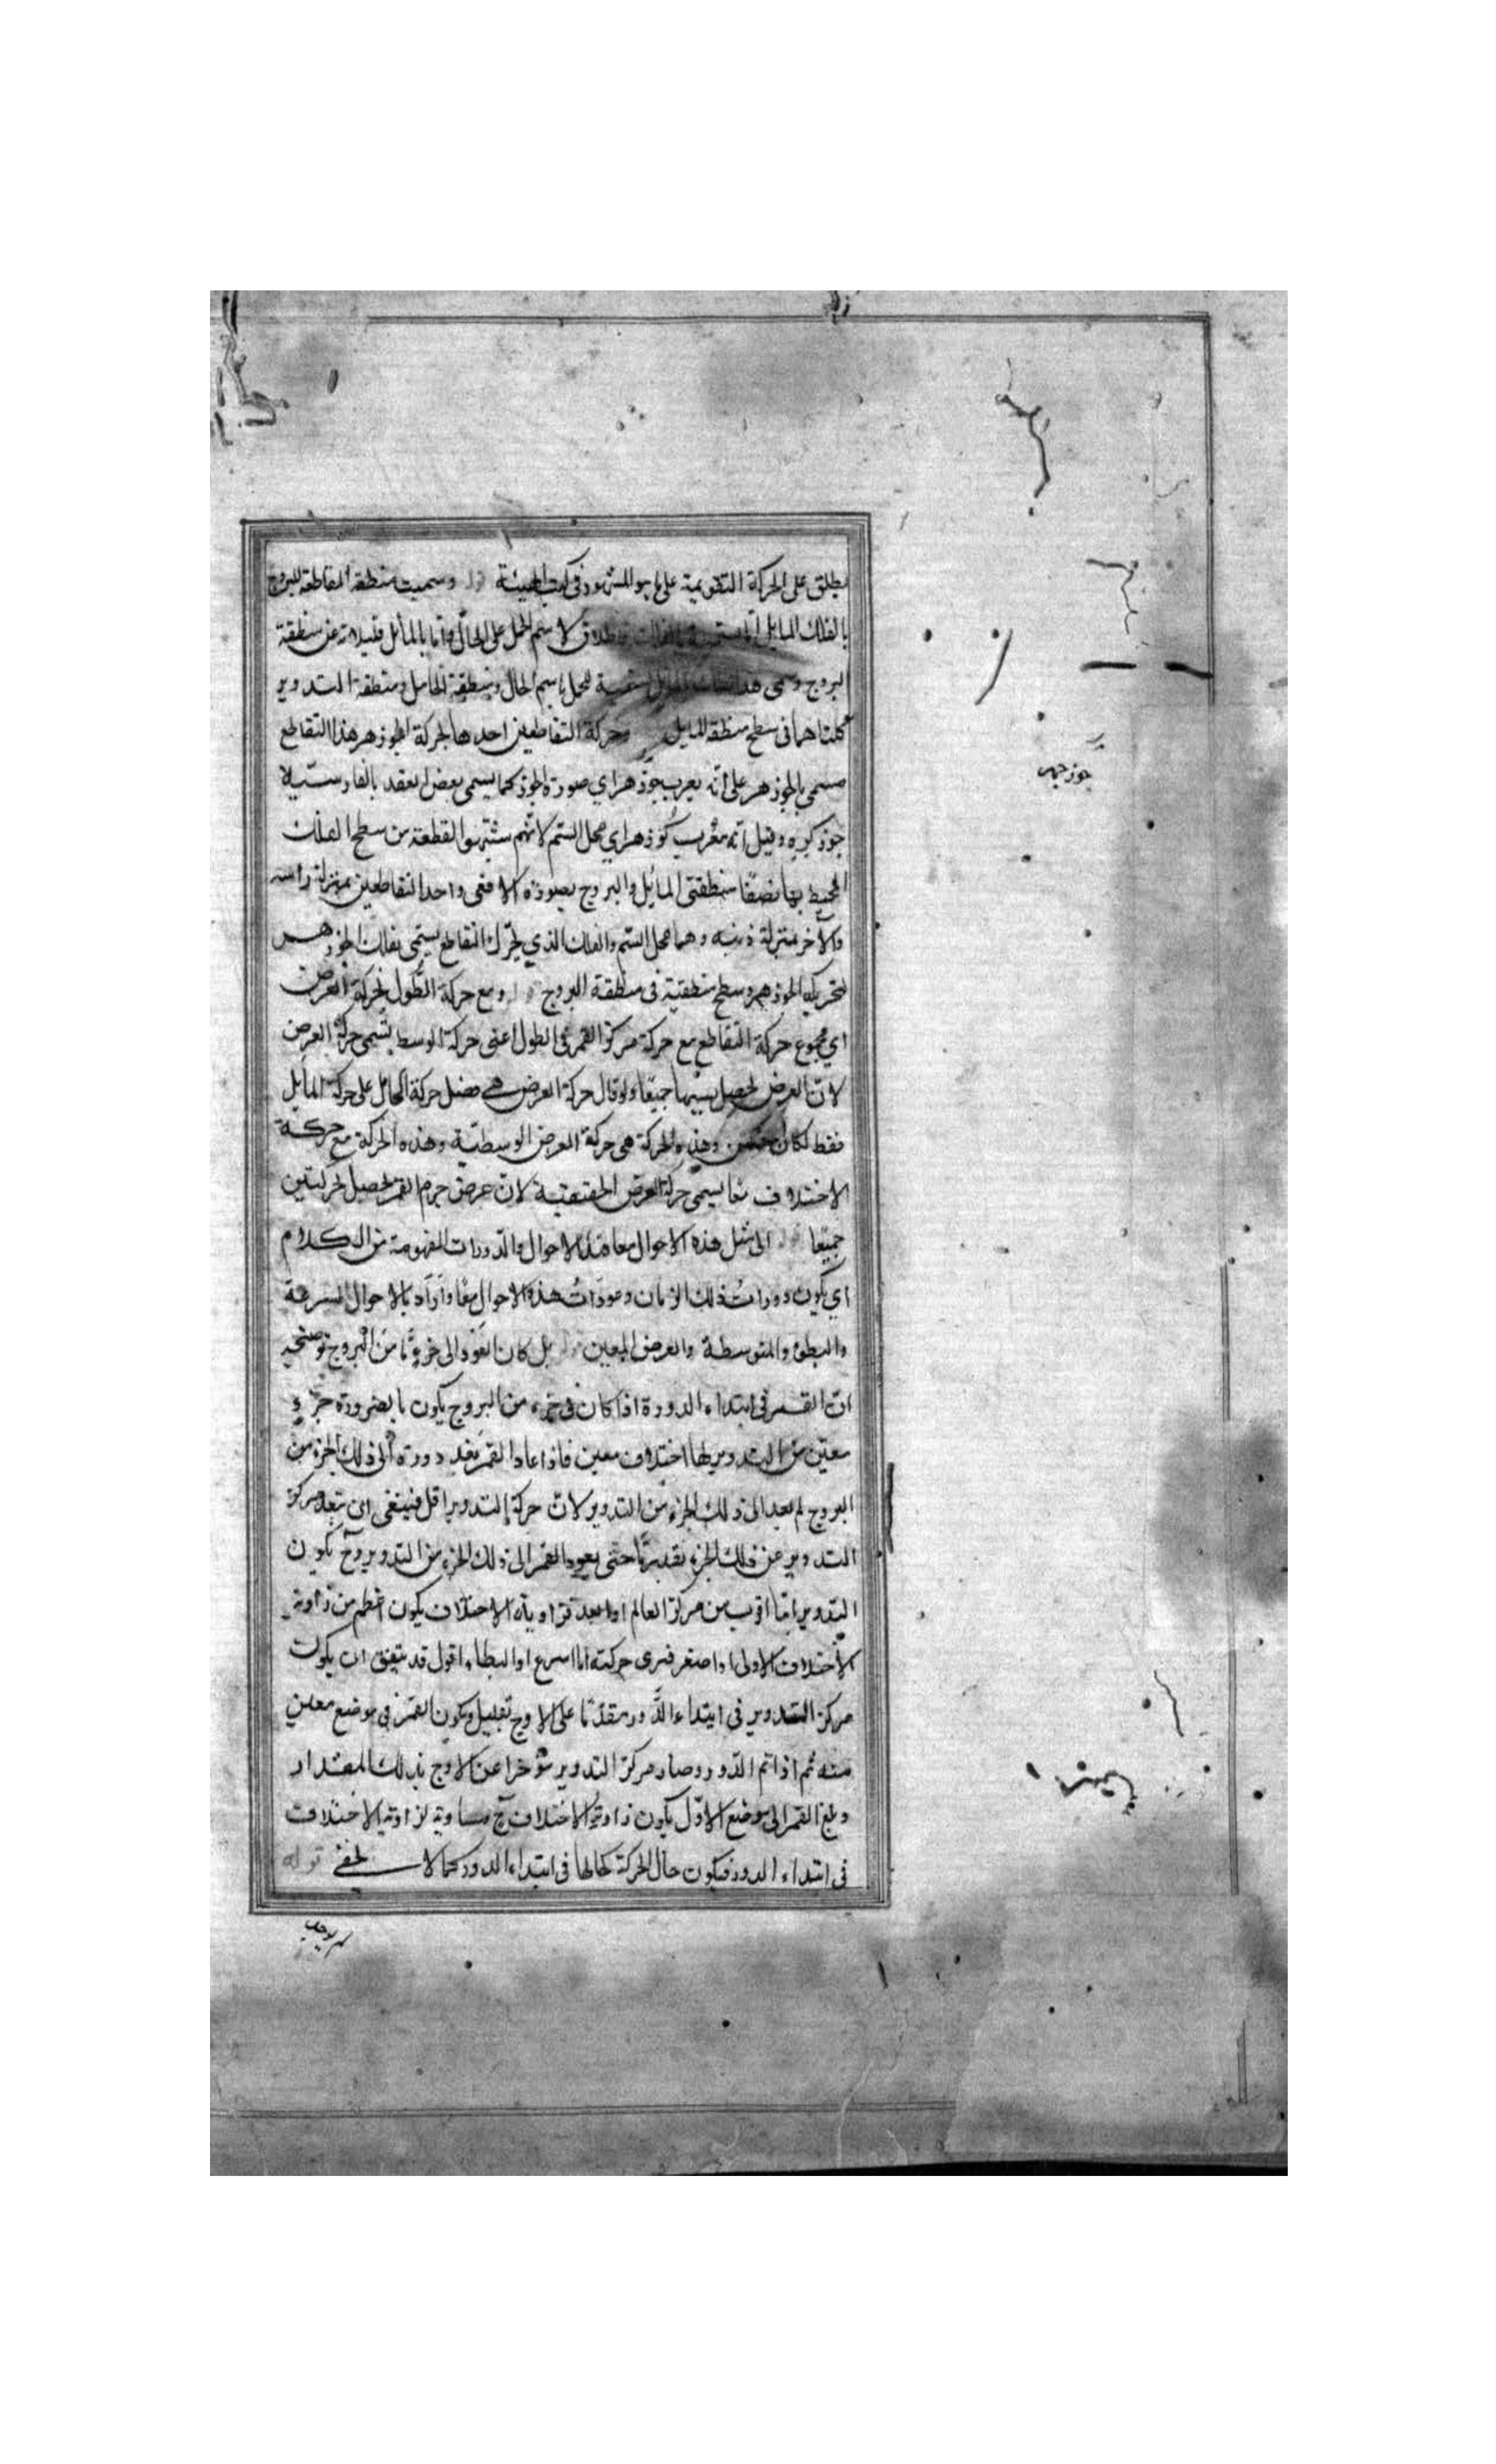 يطلق على الحركة التقويمية على ما هو المشهور في كتب الهيئة وسميت منطقة المقاطعة للبروج
بالفلك المايل لاسم المحل على الحال واما بالمايل فلميلانه عن منطقة
البروج المحل باسم الحال ومنطقة الحامل ومنطقة التدوير
كلتاهما في سطح منطقة المايل وحركة التقاطعين احدهما لحركة الجوزهر هذا التقاطع
مسمى بالجوزهر على انه يعرب جوزهر اي صورة الجوز كما يسمى بعض العقد بالفارسية
جوز كره وقيل انه معرب كوزهر اي محل السم لانهم شبهوا القطعة من سطح الفلك
المحيط بها نصفا منطقتي المايل والبروج بصورة الافعى واحد التقاطعين بمنزلة راسه
والآخر بمنزلة ذنبه وهما محل السم والفلك الذي يحرك التقاطع يسمى بفلك الجوزهر
لتحريكه الجوزهر وسطح منطقته في منطقة البروج ومع حركة الطول بحركة العرض
اي مجموع حركة التقاطع مع حركة مركز القمر في الطول اعني حركة الوسط يسمى حركة العرض
لان العرض يحصل بسببهما جميعا ولو قال حركة العرض هي فضل حركة الحامل على حركة المايل
فقط لكان وهذه الحركة هي حركة العرض الوسطية وهذه الحركة مع حركة
الاختلاف معا يسمى حركة العرض الحقيقية لان عرض جرم القمر يحصل بحركتين
جميعا الى مثل هذه الاحوال معا هذا الاحوال والدورات المفهومة من الكلام
اي يكون دورات ذلك الزمان وعودات هذه الاحوال معا واراد بالاحوال السرعة
والبطؤ والمتوسطة والعرض المعين بل كان العود الى جزء ما من البروج توضيحه
ان القمر في ابتداء الدورة اذا كان في جزء من البروج يكون بالضرورة جزء
معين من التدوير لها اختلاف معين فاذا عاد القمر بعد دورة الى ذلك الجزء من
البروج لم يعد الى ذلك الجزء من التدوير لان حركة التدوير اقل فينبغي ان يبعد مركز
التدوير عن ذلك الجزء بقدر ما حتى يعود القمر الى ذلك الجزء من التدوير وح يكون
التدوير اما اقرب من مركز العالم او ابعد فزاوية الاختلاف يكون اعظم من زاوية
الاختلاف الاولى او اصغر فيرى حركته اما اسرع او ابطاء اقول قد يتفق ان يكون
مركز التدوير في ابتداء الدور متقدما على الاوج بقليل ويكون القمر في موضع معين
منه ثم اذا تم الدور وصار مركز التدوير مؤخرا عن الاوج بذلك المقدار
وبلغ القمر الى موضع الاول يكون زاوية الاختلاف ح مساوية لزاوية الاختلاف
في ابتداء الدور فيكون حال الحركة كحالها في ابتداء الدور كما لا يخفى قوله
جوزجهر